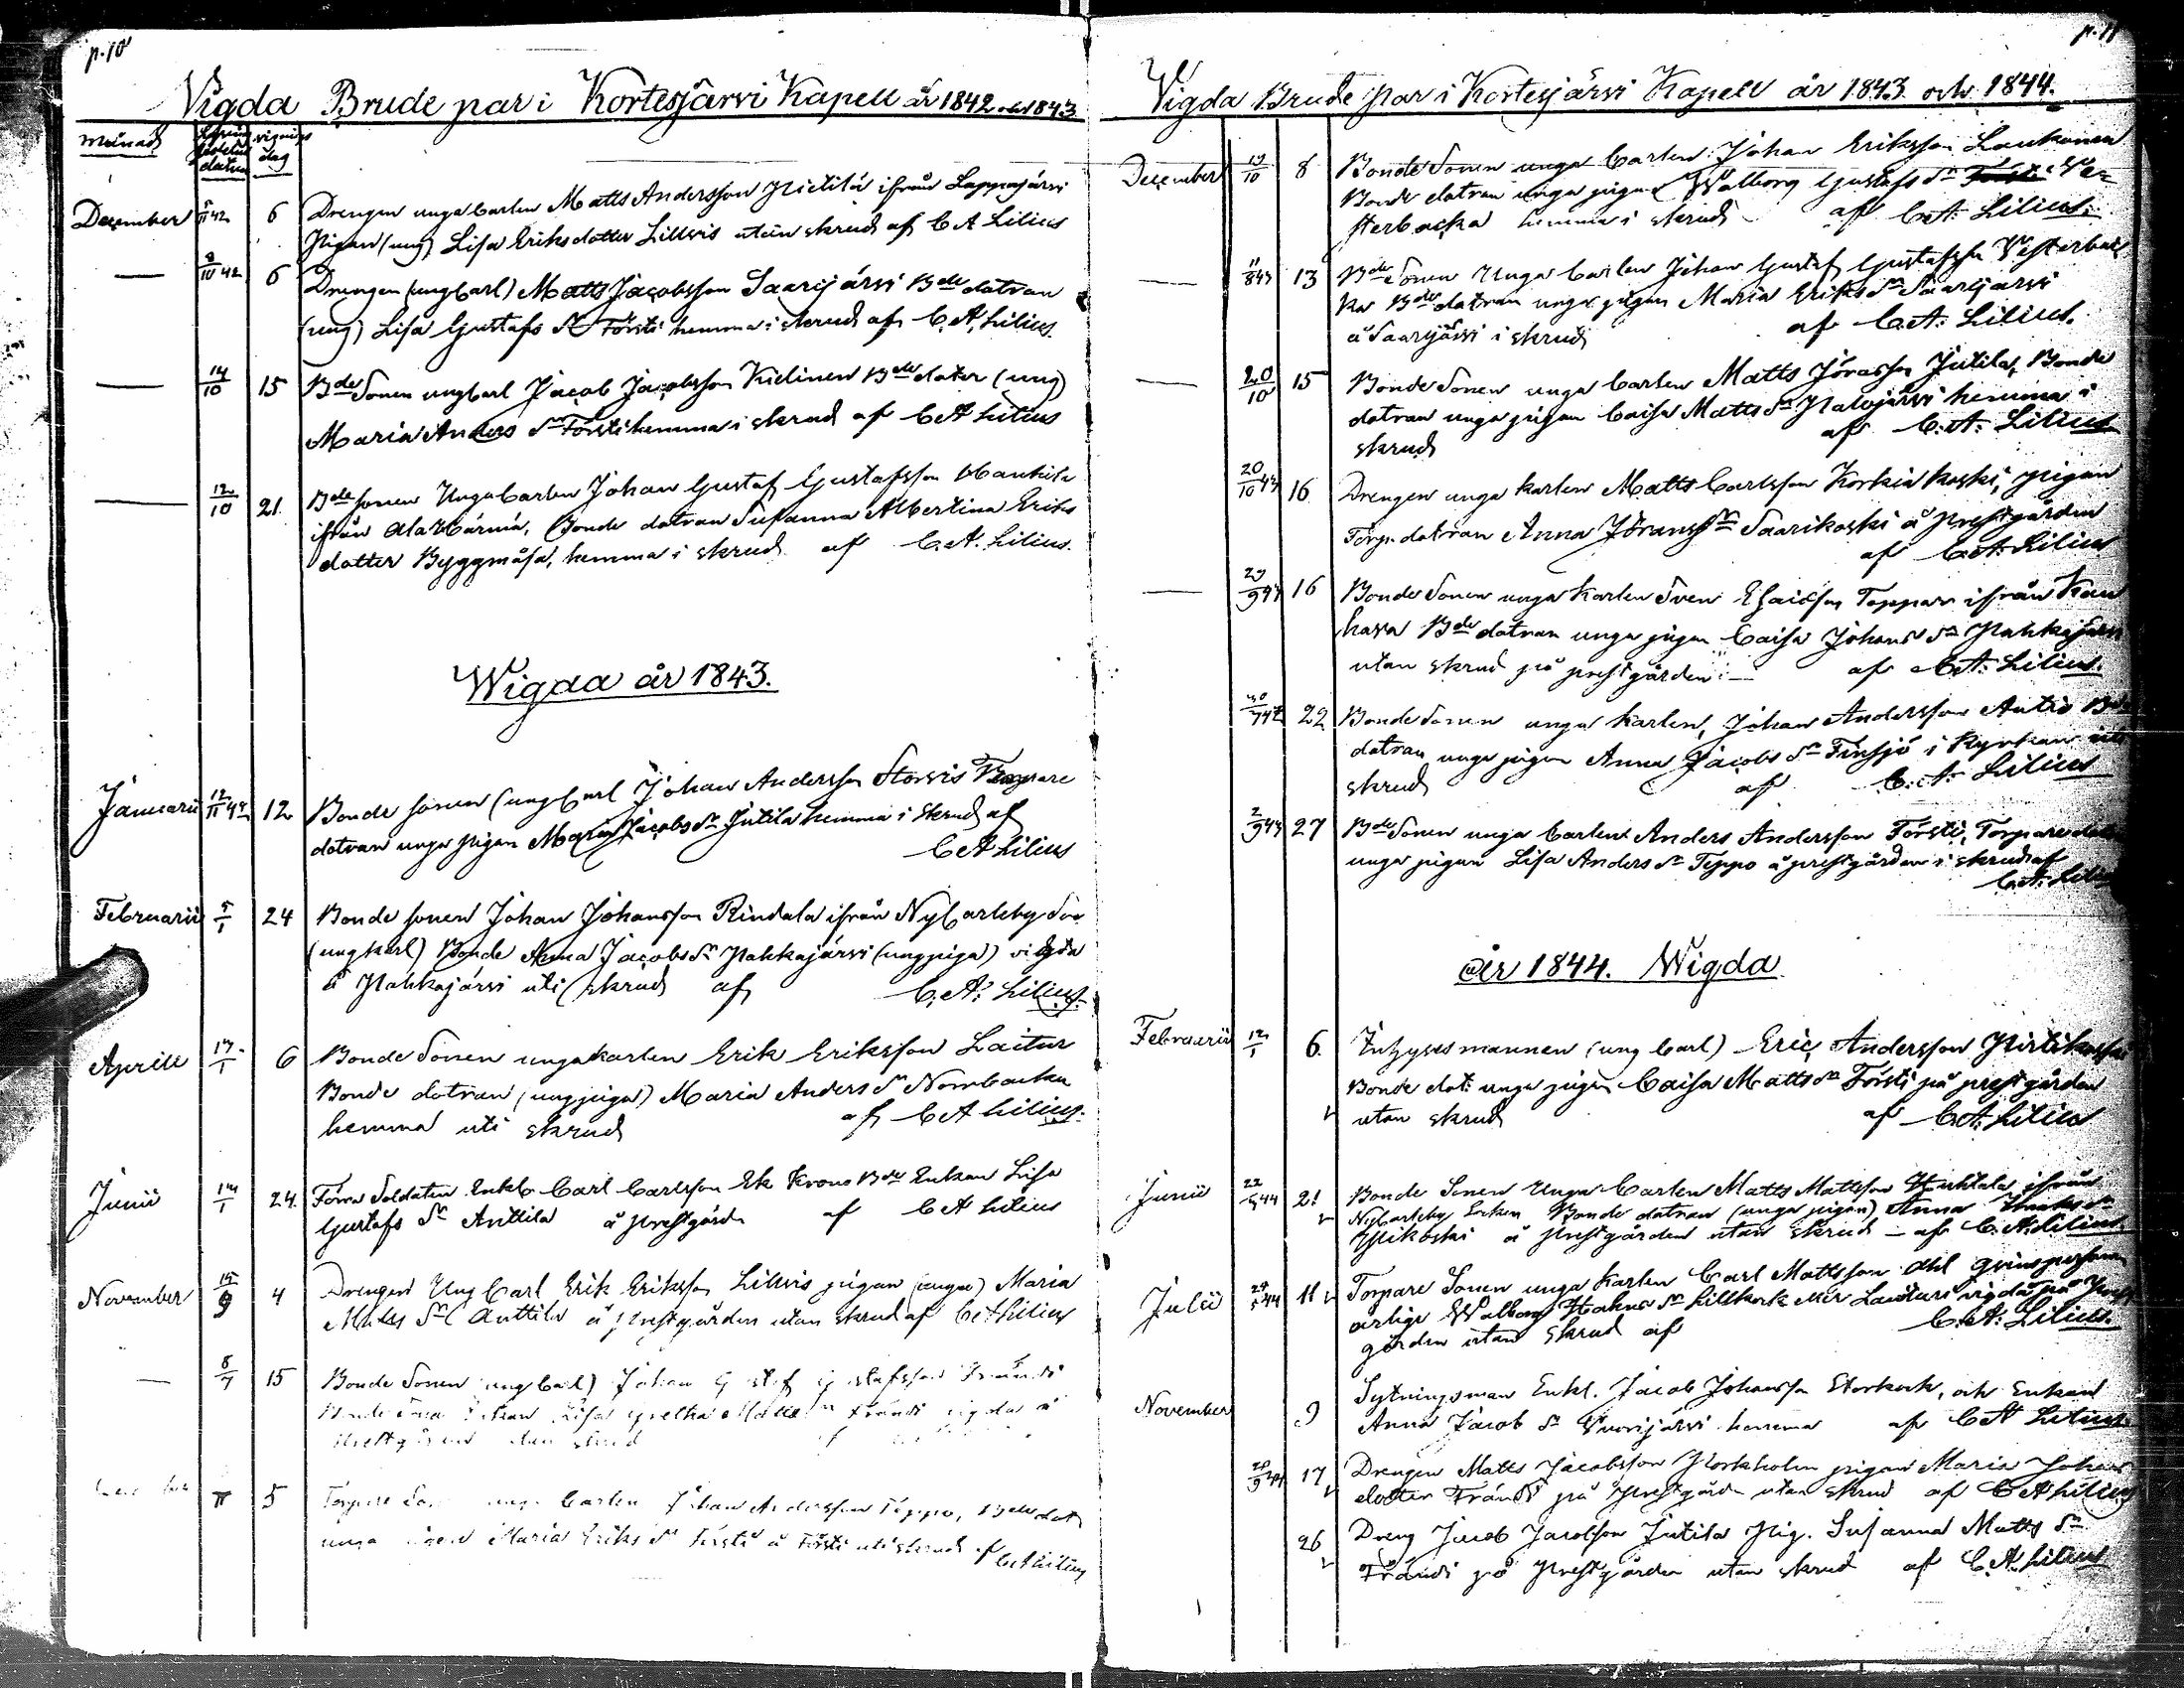 p.10
Vigda Brude par i Kortesjärvi Kapell år 1842 och 1843
månad
Lysnings sedelns datum
vignings dag
December 11 42 6 Drengen unga Carlen Matts Andersson Pietilä ifrån Lappajärvi
Pigan (ung) Lisa Eriksdotter Lillvis utan skrud af C A Lilius
— 9/10 42 6 Drengen (ung Carl) Matts Jacobsson Saarijärvi Bde dotran
(ung) Lisa Gustafs Dr Försti hemma i skrud af C. A. Lilius.
— 14/10 15 Bde Sonen ung Carl Jacob Jacobsson Kielinen Bde doter (ung)
Maria Anders Dr Försti hemma i skrud af C A Lilius
— 12/10 21. Bde sonen Unga Carlen Johan Gustaf Gustafsson
ifrån Ala Härmä, Bonde dotran Susanna Albertina Eriks
dotter Byggmäsa, hemma i skrud af C. A. Lilius.
Wigda år 1843.
Januarii 12/11 42 12 Bonde sonen (ung Carl Johan Andersson Storvis Torpare
dotran unga pigan Maria Jacobs Dr Jutila hemma i skrud af
C A Lilius
Februarii 5/1 24 Bonde sonen Johan Johansson Rindala ifrån NyCarleby Son
(ung karl) Bonde Anna Jacobs Dr Pahkajärvi (ung piga) vigda
å Pahkajärvi uti skrud af C. A. Lilius.
Aprill 17/1 6 Bonde Sonen unga karlen Erik Eriksson Laitur
Bonde dotran (ung piga) Maria Anders Dr Norrbacka
hemma uti skrud af C A Lilius.
Junii 14/1 24. Förra Soldaten Enkl. Carl Carlsson Ek Krono Bde Enkan Lisa
Gustafs Dr Anttila å prestgård af C A Lilius
November 15/9 4 Drengen Ung Carl Erik Eriksson Lillvis pigan (unga) Maria
Matts Dr Anttila å prestgården utan skrud af C A Lilius
— 8/7 15 Bonde Sonen (ung Carl) Johan Gustaf Gustafsson Frändi
Lisa Gretha Matts Dr Frändi vigda å
prestgården utan skrud
5 Torpare Son unga Carlen Johan Andersson Teppo, Bde dot
unga Maria Eriks Dr Försti å Försti uti skrud af C A Lilius
p. 11
Vigda Brude par i Kortesjärvi Kapell år 1843 och 1844.
December 19/10 8 Bonde Sonen unga Carlen Johan Eriksson Laukonen
Bonde dotran unga pigan Walborg Gustafs Dr Ves
terbacka hemma i skrud af C. A. Lilius.
— 11/8 43 13 Bde Sonen Unga Carlen Johan Gustaf Gustafsson Vesterbac
ka Bde dotran unga pigan Maria Eriks Dr Saarijärvi
å Saarijärvi i skrud af C. A. Lilius.
— 20/10 15 Bonde Sonen unga Carlen Matts Jöransson Jutila, Bonde
dotran unga pigan Caisa Matts Dr Palojärvi hemma i
skrud af C. A. Lilius
20/10 43 16 Drengen unga karlen Matts Carlsson Korkia koski, pigan
Torp. dotran Anna Jöranss Dr Saarikoski å prestgården
af C. A. Lilius
— 29/9 43 16 Bonde Sonen unga Karlen Sven Esaiasson Toppar ifrån Kau
hava Bde dotran unga pigan Caisa Johans Dr Pahkajärvi
utan skrud på prestgården af C. A. Lilius.
22 Bonde Sonen unga Karlen, Johan Andersson Autio Bde
dotran unga pigan Anna Jacobs Dr Finsjö i Kyrkan uti
skrud af C. A. Lilius
2/9 43 27 Bde Sonen unga Carlen Anders Andersson Försti, Torpare dotr
unga pigan Lisa Anders Dr Teppo å prestgården i skrud af
C. A. Lilius
år 1844. Wigda
Februarii 12/1 6. Inhyses mannen (ung Carl) Eric Andersson
Bonde dot. unga pigan Caisa Matts Dr Försti på prestgården
utan skrud af C. A. Lilius
Junii 22/5 44 21 Bonde Sonen Unga Carlen Matts Mattsson Huhtala ifrån
NyCarleby Socken Bonde dotran (unga pigan) Anna
Ylikoski å prestgården utan skrud — af C. A. Lilius
Julii 24/5 44 11 Torpare Sonen unga Karlen Carl Mattsson Ahl qvinsperson
ärliga Walborg Johans Dr Lillkork eller Lauturi vigda på prest
gården utan skrud af C. A. Lilius.
November 9 Sytningsman Enkl. Jacob Johansson Storkork, och Enkan
Anna Jacob Dr Vuorijärvi hemma af C A Lilius
17 Drengen Matts Jacobsson Storkholm pigan Maria Johans
dotter Frändi på prestgården utan skrud af C A Lilius
26 Dreng Jacob Jacobsson Jutila Pig. Susanna Matts Dr
Frändi på prestgården utan skrud af C. A. Lilius